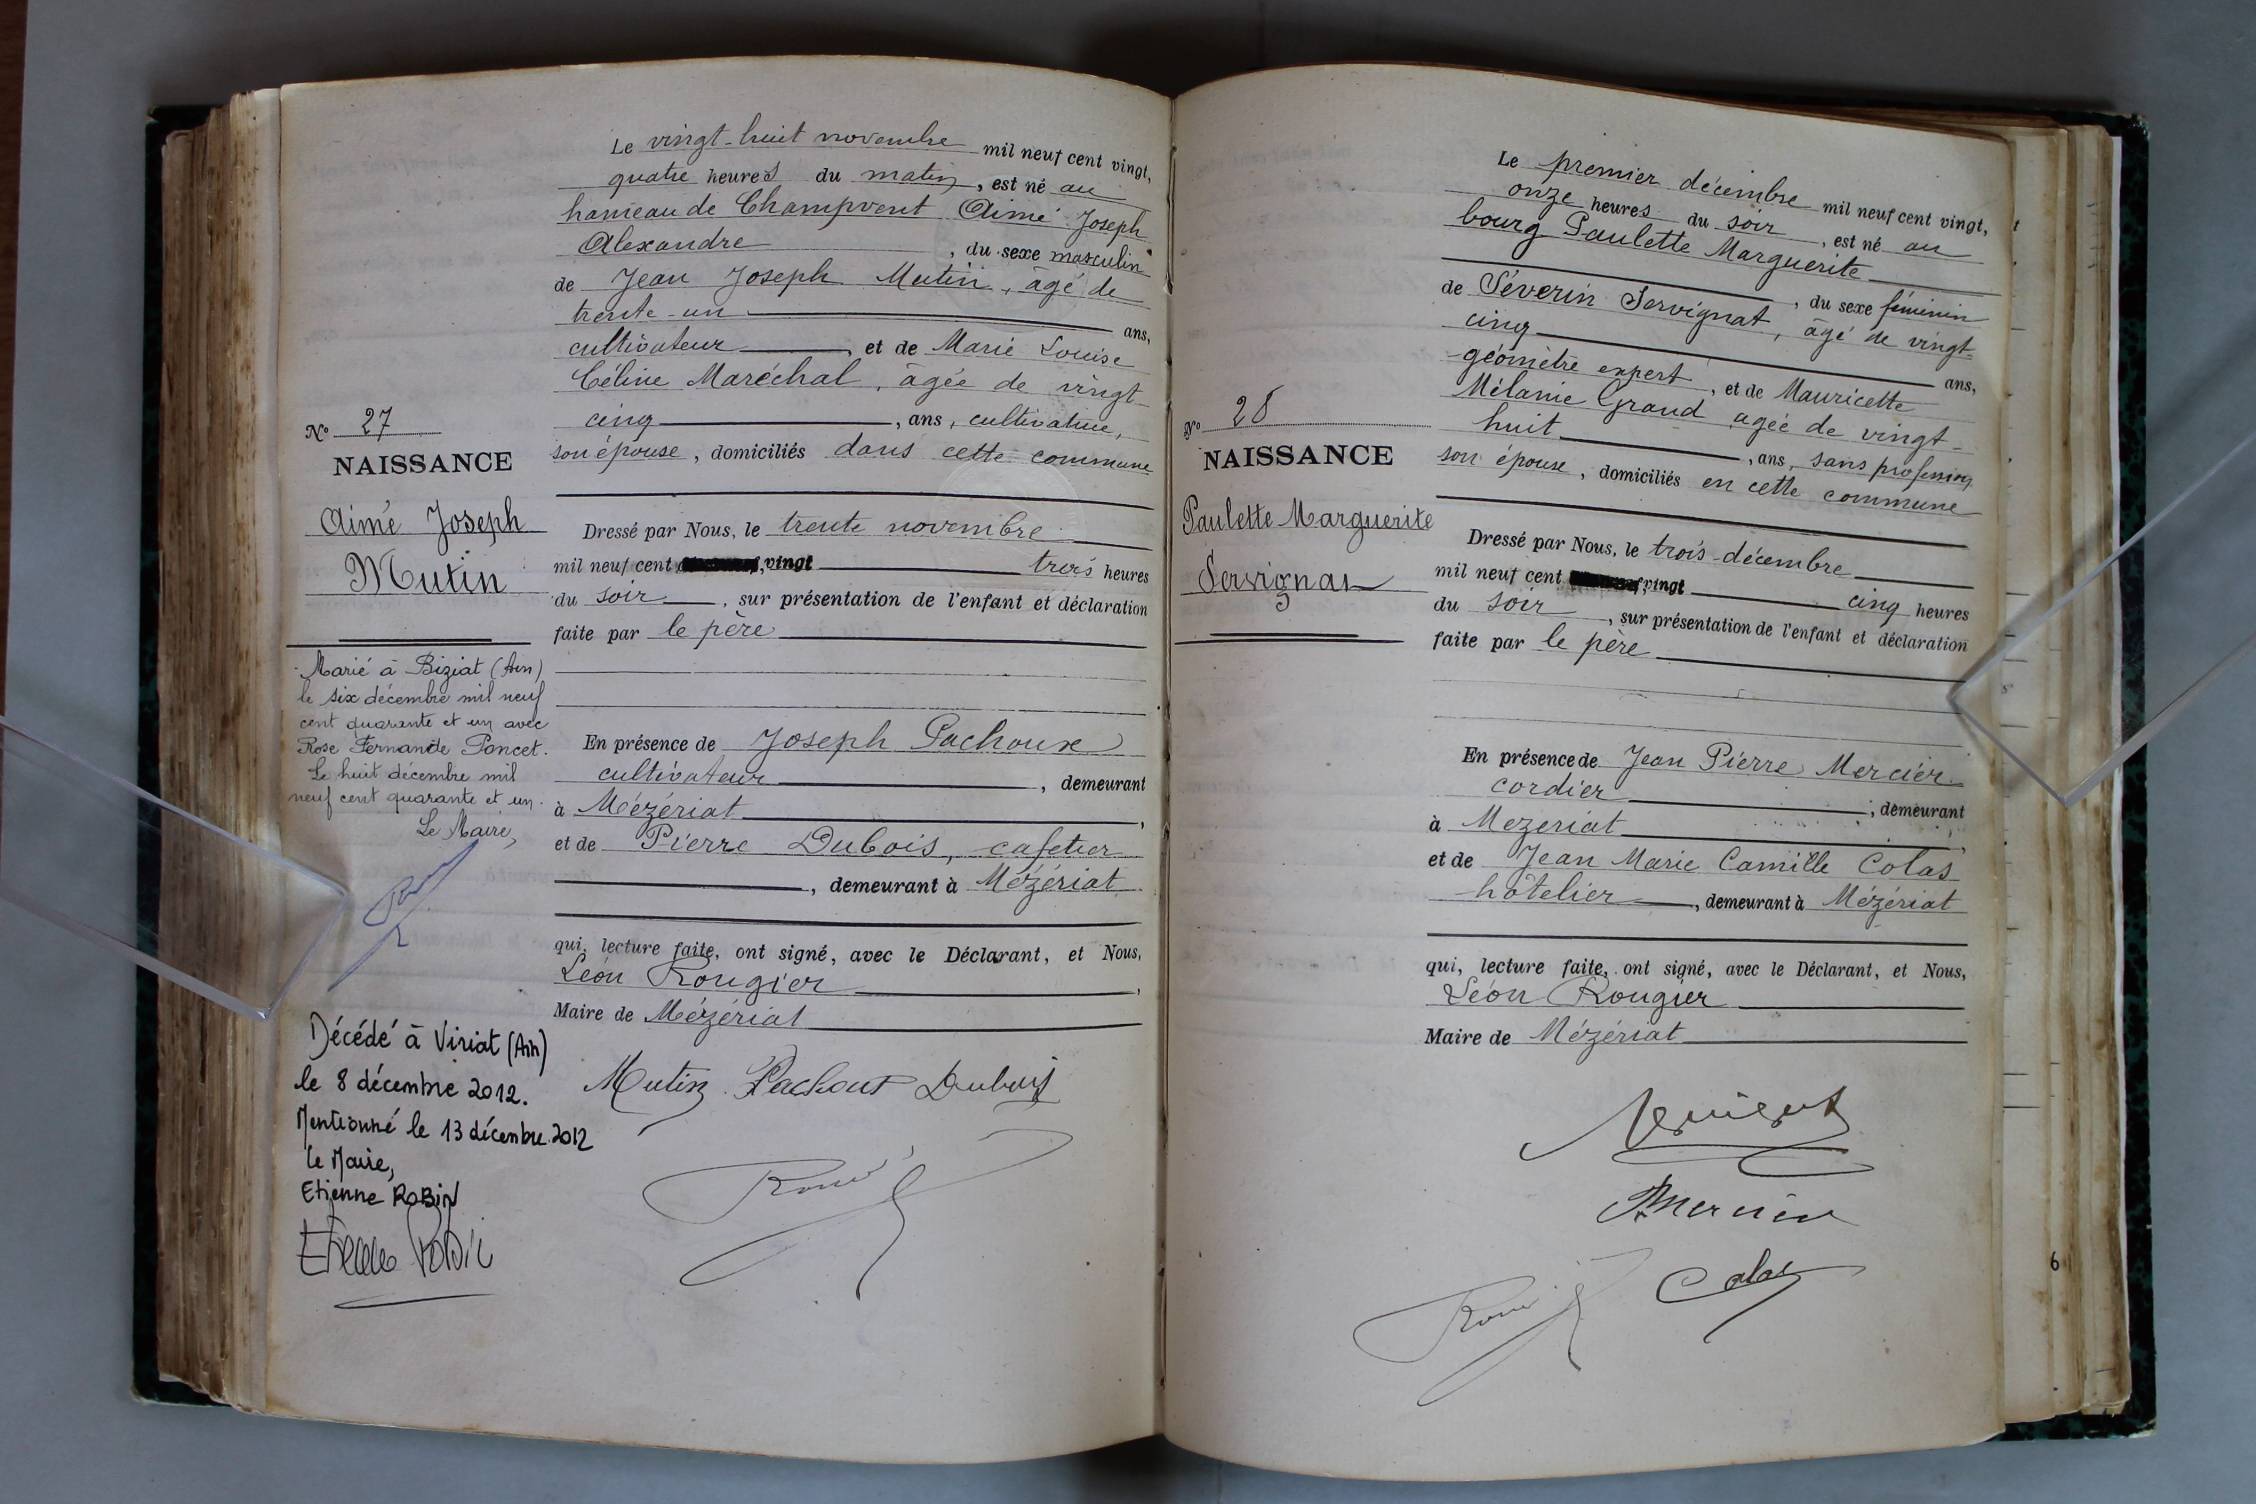 Le vingt-huit novembre mil neuf cent vingt,
quatre heures du matin, est né au
hameau de Champvent Aimé Joseph
Alexandre, du sexe masculin
de Jean Joseph Mutin, âgé de
trente-un ans,
cultivateur, et de Marie Louise
Céline Maréchal, âgée de vingt
cinq, ans, cultivatrice,
son épouse, domiciliés dans cette commune
N° 27
NAISSANCE
Aimé Joseph
Mutin
Dressé par Nous, le trente novembre
mil neuf cent vingt trois heures
du soir, sur présentation de l'enfant et déclaration
faite par le père
En présence de Joseph Pachoux
cultivateur, demeurant
à Mézériat,
et de Pierre Dubois, cafetier
, demeurant à Mézériat
qui, lecture faite, ont signé, avec le Déclarant, et Nous,
Léon Rougier,
Maire de Mézériat
Mutin Pachoux Dubois
Marié à Biziat (Ain)
le six décembre mil neuf
cent quarante et un avec
Rose Fernande Poncet.
Le huit décembre mil
neuf cent quarante et un.
Le Maire,
Décédé à Viriat (Ain)
le 8 décembre 2012.
Mentionné le 13 décembre 2012
Le Maire,
Etienne ROBIN
Etienne Robin
Le premier décembre mil neuf cent vingt,
onze heures du soir, est né au
bourg Paulette Marguerite
, du sexe féminin
de Séverin Servignat, âgé de vingt-
cinq ans,
géomètre expert, et de Mauricette
Mélanie Grand agée de vingt-
huit, ans, sans profession
son épouse, domiciliés en cette commune
N° 28
NAISSANCE
Paulette Marguerite
Servignat
Dressé par Nous, le trois décembre
mil neuf cent vingt cinq heures
du soir, sur présentation de l'enfant et déclaration
faite par le père
En présence de Jean Pierre Mercier
cordier, demeurant
à Mezeriat,
et de Jean Marie Camille Colas
hôtelier, demeurant à Mézériat
qui, lecture faite, ont signé, avec le Déclarant, et Nous,
Léon Rougier
Maire de Mézériat
Servignat
Mercier
Colas
6